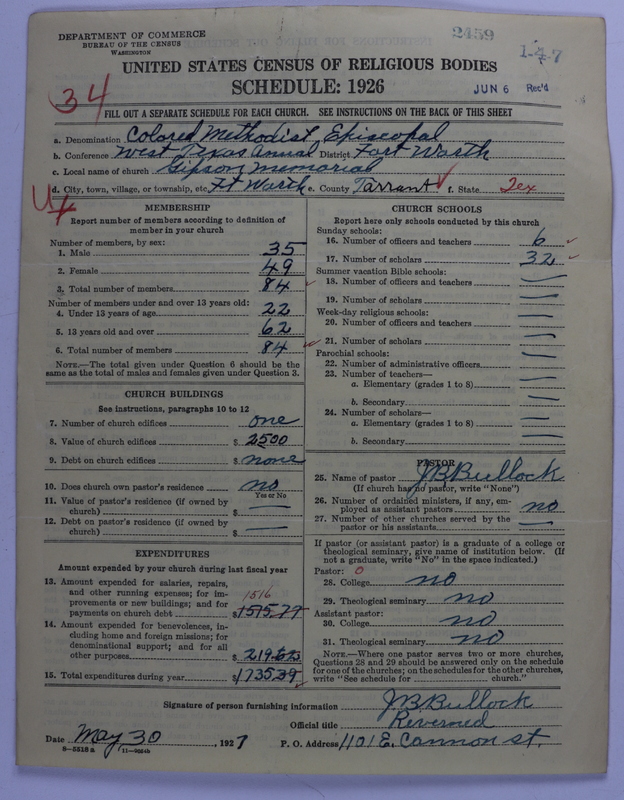 DEPARTMENT OF COMMERCE
BUREAU OF THE CENSUS
WASHINGTON
2459
1-4-7
UNITED STATES CENSUS OF RELIGIOUS BODIES
SCHEDULE: 1926
JUN 6 Rec'd
34
FILL OUT A SEPARATE SCHEDULE FOR EACH CHURCH. SEE INSTRUCTIONS ON THE BACK OF THIS SHEET
a. Denomination Colored Methodist Episcopal
b. Conference West Texas Annual District Fort Worth
c. Local name of church Gipson Memorial
d. City, town, village, or township, etc. Ft Worth e. County Tarrant f. State Tex
MEMBERSHIP
Report number of members according to definition of member in your church
Number of members, by sex:
1. Male 35
2. Female 49
3. Total number of members 84
Number of members under and over 13 years old:
4. Under 13 years of age 22
5. 13 years old and over 62
6. Total number of members 84
NOTE.—The total given under Question 6 should be the same as the total of males and females given under Question 3.
CHURCH BUILDINGS
See instructions, paragraphs 10 to 12
7. Number of church edifices one
8. Value of church edifices $ 2500
9. Debt on church edifices $ none
10. Does church own pastor's residence no
Yes or No
11. Value of pastor's residence (if owned by church) $ —
12. Debt on pastor's residence (if owned by church) $ —
EXPENDITURES
Amount expended by your church during last fiscal year
13. Amount expended for salaries, repairs, and other running expenses; for improvements or new buildings; and for payments on church debt 1516 $ 1515.77
14. Amount expended for benevolences, including home and foreign missions; for denominational support; and for all other purposes
15. Total expenditures during year $ 1735.39
CHURCH SCHOOLS
Report here only schools conducted by this church
Sunday schools:
16. Number of officers and teachers 6
17. Number of scholars 32
Summer vacation Bible schools:
18. Number of officers and teachers —
19. Number of scholars —
Week-day religious schools:
20. Number of officers and teachers —
21. Number of scholars —
Parochial schools:
22. Number of administrative officers —
23. Number of teachers—
a. Elementary (grades 1 to 8) —
b. Secondary —
24. Number of scholars—
a. Elementary (grades 1 to 8) —
b. Secondary —
PASTOR
25. Name of pastor JB Bullock
(If church has no pastor, write "None")
26. Number of ordained ministers, if any, employed as assistant pastors no
27. Number of other churches served by the pastor or his assistants —
If pastor (or assistant pastor) is a graduate of a college or theological seminary, give name of institution below. (If not a graduate, write "No" in the space indicated.)
Pastor: 0
28. College no
29. Theological seminary no
Assistant pastor:
30. College no
31. Theological seminary no
NOTE.—Where one pastor serves two or more churches, Questions 28 and 29 should be answered only on the schedule for one of the churches; on the schedules for the other churches, write "See schedule for church."
Signature of person furnishing information JB Bullock
Official title Reverned
Date May 30, 1927 P. O. Address 1101 E. Cannon st.
8-5518 a